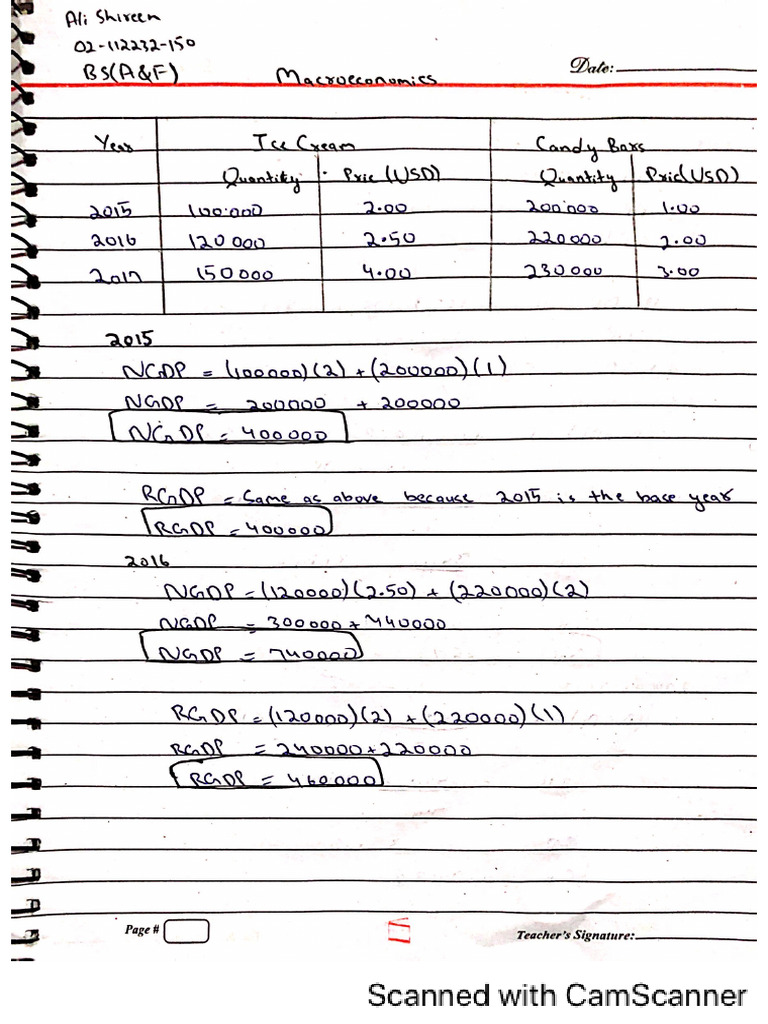 Ali Shireen
02-112232-150
BS(A&F)
Macroeconomics
Date:
Year Ice Cream Candy Bars
Quantity Pric (USD) Quantity Pric(USD)
2015 100.000 2.00 200.000 1.00
2016 120 000 2.50 220000 2.00
2017 150 000 4.00 230.000 3.00
2015
NGDP = (100000)(2) + (200000)(1)
NGDP = 200000 + 200000
NGDP = 400000
RGDP = Same as above because 2015 is the base year
RGDP = 400000
2016
NGDP = (120000)(2.50) + (220000)(2)
NGDP = 300000 + 440000
NGDP = 740000
RGDP = (120000)(2) + (220000)(1)
RGDP = 240000+220000
RGDP = 460000
Page #
Teacher's Signature:
Scanned with CamScanner